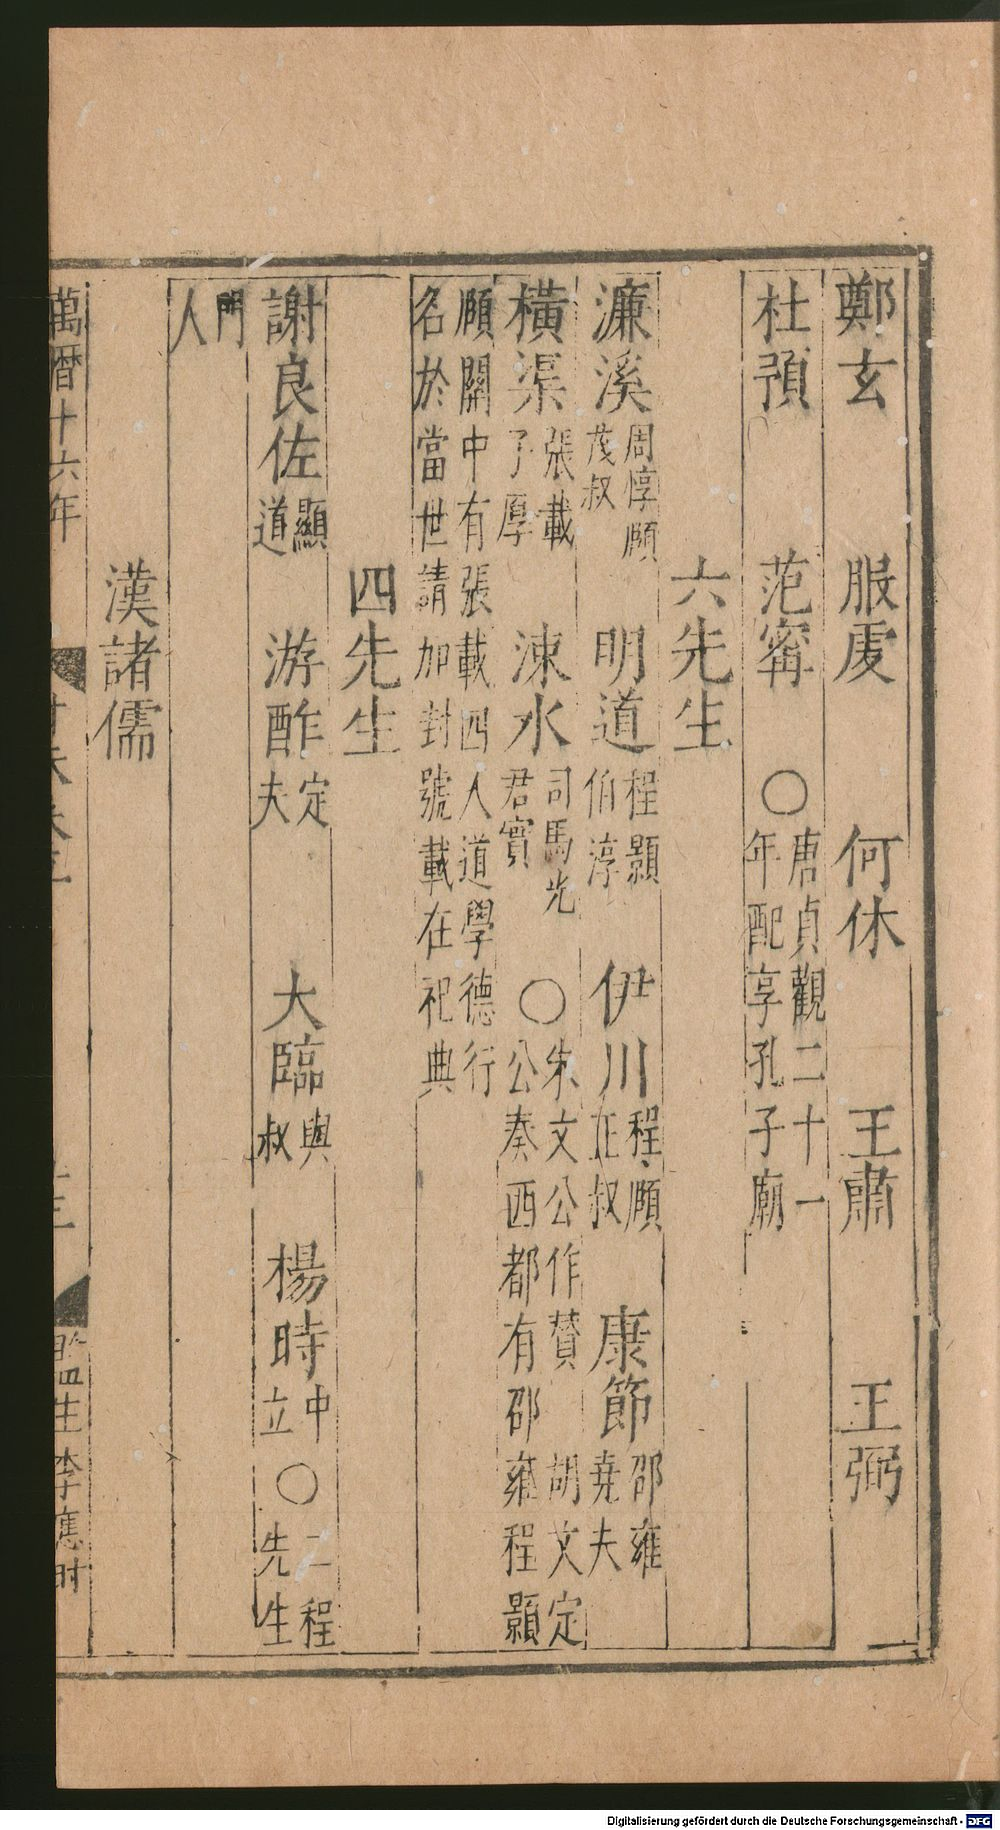 鄭玄　服虔　何休　王肅　王弼
杜預　范甯　○唐貞觀二十一年配享孔子廟
六先生
濂溪周惇頤茂叔　明道程顥伯淳　伊川程頤正叔　康節邵雍堯夫
橫渠張載子厚　涑水司馬光君實　○朱文公作贊　胡文定公奏西都有邵雍程顥
頤關中有張載四人道學德行名於當世請加封號載在祀典
四先生
謝良佐顯道　游酢定夫　大臨與叔　楊時中立　○二程先生
門人
漢諸儒
萬曆十六年　監生李應时
Digitalisierung gefördert durch die Deutsche Forschungsgemeinschaft - DFG